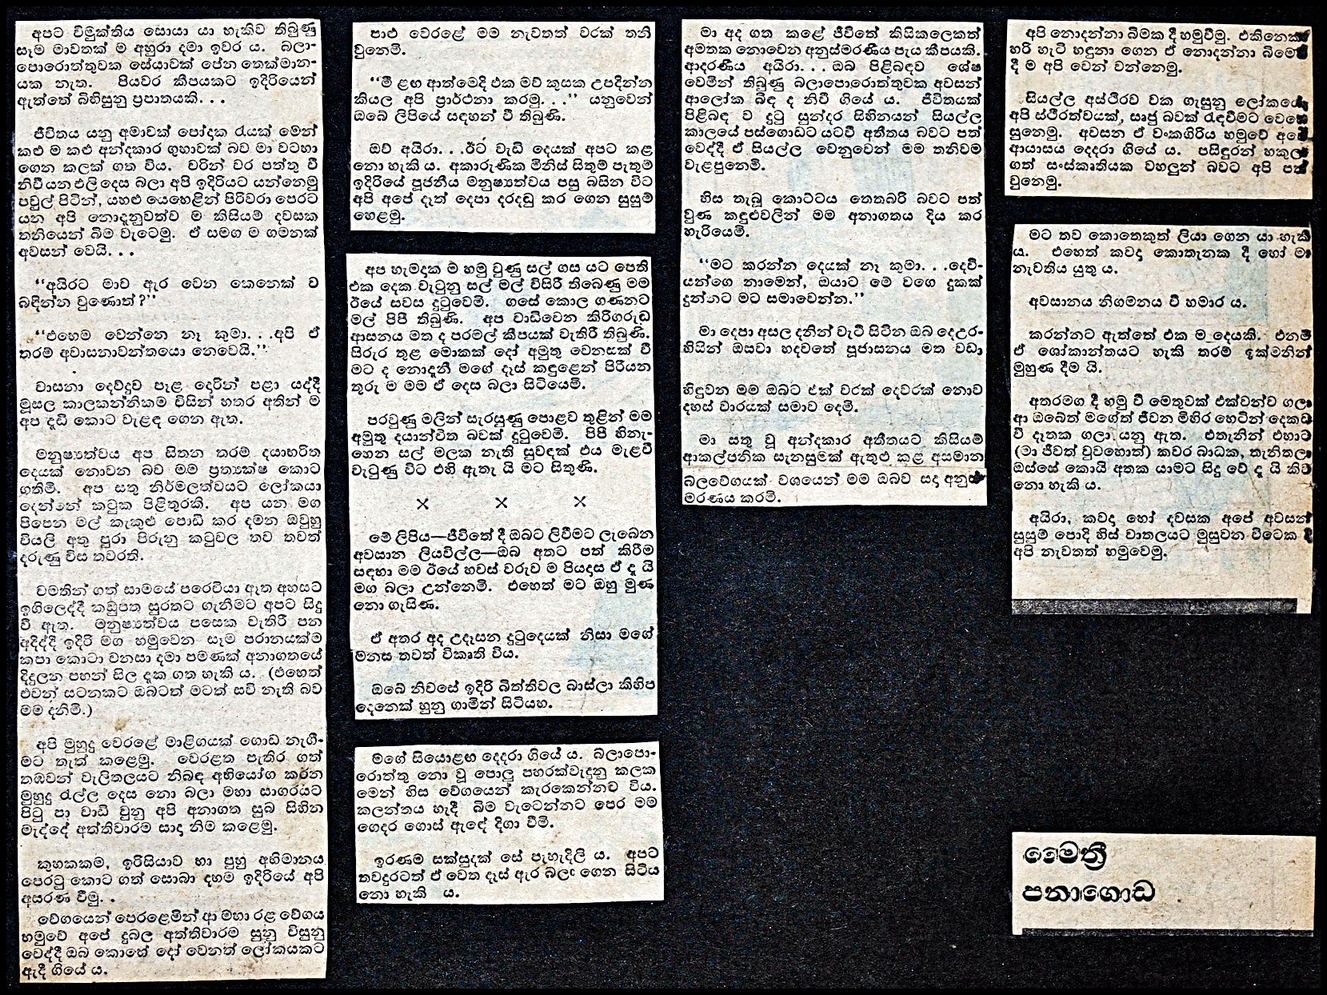 අපට විමුක්තිය සොයා යා හැකිව තිබුණු
සෑම මාවතක් ම අහුරා දමා ඉවර ය. බලා-
පොරොත්තුවක සේයාවක් පේන තෙක්මාන-
යක නැත. පියවර කීපයකට ඉදිරියෙන්
ඇත්තේ බිහිසුනු ප්‍රපාතයකි. . .
ජීවිතය යනු අමාවක් පෝදක රැයක් මෙන්
කළු ම කළු අන්දකාර ගුහාවක් බව මා වටහා
ගෙන කලක් ගත විය. වරින් වර පත්තු වී
නිවී යන එලි දෙස බලා අපි ඉදිරියට යන්නෙමු
පවුල් පිටින්, යහළු යෙහෙළින් පිරිවරා පෙරට
යන අපි නොදැනුවත්ව ම කිසියම් දවසක
තනියෙන් බිම වැටෙමු. ඒ සමග ම ගමනක්
අවසන් වෙයි. . .
‘‘අයිරාට මාව ඇර වෙන කෙනෙක් ව
බඳින්න වුණොත්?’’
‘‘එහෙම වෙන්නෙ නෑ කුමා. . .අපි ඒ
තරම් අවාසනාවන්තයො නෙවෙයි.’’
වාසනා දෙව්දුව පැළ දෙරින් පළා යද්දී
මූසල කාලකන්නිකම විසින් හතර අතින් ම
අප දැඩි කොට වැළඳ ගෙන ඇත.
මනුෂ්‍යත්වය අප සිතන තරම් දයාභරිත
දෙයක් නොවන බව මම ප්‍රත්‍යක්ෂ කොට
ගතිමි. අප සතු නිර්මලත්වයට ලෝකයා
දෙන්නේ කටුක පිළිතුරකි. අප යන මග
පිපෙන මල් කැකුළු පොඩි කර දමන ඔවුහු
වියලි අතු පුරා පිරුනු කටුවල තව තවත්
දරුණු විස තවරති.
වමතින් ගත් සාමයේ පරෙවියා ඈත අහසට
ඉගිලෙද්දී කඩුපත සුරතට ගැනීමට අපට සිදු
වී ඇත. මනුෂ්‍යත්වය පසෙක වැතිරී පන
අදිද්දී ඉදිරි මග හමුවෙන සෑම පරානයක්ම
කපා කොටා වනසා දමා පමණක් අනාගතයේ
දිදුලන පහන් සිල දැක ගත හැකි ය. (එහෙත්
එවන් සටනකට ඔබටත් මටත් සවි නැති බව
මම දනිමි.)
අපි මුහුදු වෙරළේ මාළිගයක් ගොඩ නැගී-
මට තැත් කළෙමු. වෙරළත පැතිර ගත්
තඹවන් වැලිතලයට නිබඳ අභියෝග කරන
මුහුදු රැල්ල දෙස නො බලා මහා සාගරයට
පිටු පා වාඩි වුනු අපි අනාගත සුබ සිහින
මැද්දේ අත්තිවාරම සාදා නිම කළෙමු.
කුහකකම, ඉරිසියාව හා පුහු අභිමානය
පෙරටු කොට ගත් සොබා දහම ඉදිරියේ අපි
අසරණ වීමු. .
වේගයෙන් පෙරළෙමින් ආ මහා රළ වේගය
හමුවේ අපේ දුබල අත්තිවාරම සුනු විසුනු
වෙද්දී ඔබ කොහේ දෝ වෙනත් ලෝකයකට
ඇදී ගියේ ය.
පාළු වෙරළේ මම නැවතත් වරක් තනි
වුනෙමි.
‘‘මී ළඟ ආත්මෙදි එක මව් කුසක උපදින්න
කියල අපි ප්‍රාර්ථනා කරමු. . .’’ යනුවෙන්
ඔබේ ලිපියේ සඳහන් වී තිබුණි.
ඔව් අයිරා. . .ඊට වැඩි දෙයක් අපට කළ
නො හැකි ය. අකාරුණික මිනිස් සිතුම් පැතුම්
ඉදිරියේ පූජනීය මනුෂ්‍යත්වය පසු බසින විට
අපි අපේ දෑත් දෙපා දරදඬු කර ගෙන සුසුම්
හෙළමු.
අප හැමදාක ම හමු වුණු සල් ගස යට පෙති
එක දෙක වැටුනු සල් මල් විසිරී තිබෙණු මම
ඊයේ සවස දුටුවෙමි. ගසේ කොල ගණනට
මල් පිපී තිබුණි. අප වාඩිවෙන කිරිගරුඬ
ආසනය මත ද පරමල් කීපයක් වැතිරී තිබුණි.
පිරුර තුළ මොකක් දෝ අමුතු වෙනසක් වී
මට ද නොදැනී මගේ දෑස් කඳුළෙන් පිරියන
තුරු ම මම ඒ දෙස බලා සිටියෙමි.
පරවුණු මලින් සැරසුණු පොළව තුළින් මම
අමුතු දයාන්විත බවක් දුටුවෙමි. පිපී හිනැ-
හෙන සල් මලක නැති සුවඳක් එය මැළවී
වැටුණු විට එහි ඇතැ යි මට සිතුණි.
× × ×
මේ ලිපිය—ජීවිතේ දී ඔබට ලිවීමට ලැබෙන
අවසාන ලියවිල්ල—ඔබ අතට පත් කිරීම
සඳහා මම ඊයේ හවස් වරුව ම පියදාස ඒ දැ යි
මග බලා උන්නෙමි. එහෙත් මට ඔහු මුණ
නො ගැසිණ.
ඒ අතර අද උදෑසන දුටුදෙයක් නිසා මගේ
මනස තවත් විකෘති විය.
ඔබේ නිවසේ ඉදිරි බිත්තිවල බාස්ලා කිහිප
දෙනෙක් හුනු ගාමින් සිටියහ.
මගේ සියොළඟ දෙදරා ගියේ ය. බලාපො-
රොත්තු නො වූ පොලු පහරක්වැදුනු කලක
මෙන් හිස වේගයෙන් කැරකෙන්නට විය.
කලන්තය හැදී බිම වැටෙන්නට පෙර මම
ගෙදර ගොස් ඇඳේ දිගා වීමි.
ඉරණම සක්සුදක් සේ පැහැදිලි ය. අපට
තවදුරටත් ඒ වෙත දෑස් ඇර බලා ගෙන සිටිය
නො හැකි ය.
මා අද ගත කළේ ජීවිතේ කිසිකලෙකත්
අමතක නොවෙන අනුස්මරණීය පැය කීපයකි.
ආදරණීය අයිරා. . . ඔබ පිළිබඳව ශේෂ
වෙමින් තිබුණු බලාපොරොත්තුවක අවසන්
ආලෝක බිඳ ද නිවී ගියේ ය. ජීවිතයක්
පිළිබඳ ව දුටු සුන්දර සිහිනයන් සියල්ල
කාලයේ පස්ගොඩට යටවී අතීතය බවට පත්
වෙද්දී ඒ සියල්ල වෙනුවෙන් මම තනිවම
වැළපුනෙමි.
හිස තැබූ කොට්ටය තෙතබරි බවට පත්
වුණ කඳුළුවලින් මම අනාගතය දිය කර
හැරියෙමි.
‘‘මට කරන්න දෙයක් නෑ කුමා. . .දෙවි-
යන්ගෙ නාමෙන්, ඔයාට මේ වගෙ දුකක්
දුන්නට මට සමාවෙන්න.’’
මා දෙපා අසල දනින් වැටී සිටින ඔබ දෙඋර-
හිසින් ඔසවා හදවතේ පූජාසනය මත වඩා
හිඳුවන මම ඔබට එක් වරක් දෙවරක් නොව
දහස් වාරයක් සමාව දෙමි.
මා සතු වූ අන්දකාර අතීතයට කිසියම්
ආකල්පනික සැනසුමක් ඇතුළු කළ අසමාන
බලවේගයක් වශයෙන් මම ඔබව සදා අනුස්
මරණය කරමි.
අපි නොදන්නා බිමක දී හමුවීමු. එකිනෙකා
හරි හැටි හඳුනා ගෙන ඒ නොදන්නා බිමේ
දී ම අපි වෙන් වන්නෙමු.
සියල්ල අස්ථිරව වක ගැසුනු ලෝකයේ
අපි ස්ථිරත්වයක්, ඍජු බවක් රැඳවීමට වෙහෙ
සුනෙමු. අවසන ඒ වංකගිරිය හමුවේ අපේ
ආයාසය දෙදරා ගියේ ය. පසිඳුරන් හකුලා
ගත් සංස්කෘතියක වහලුන් බවට අපි පත්
වුනෙමු.
මට තව කොතෙකුත් ලියා ගෙන යා හැකි
ය. එහෙත් කවදා කොතැනක දී හෝ මා
නැවතිය යුතු ය.
අවසානය නිගමනය වී හමාර ය.
කරන්නට ඇත්තේ එක ම දෙයකි. එනම්
ඒ ශෝකාන්තයට හැකි තරම් ඉක්මනින්
මුහුණ දීම යි.
අතරමග දී හමු වී මෙතුවක් එක්වන්ව ගලා
ආ ඔබෙත් මගේත් ජීවන මිහිර හෙටින් දෙකඩ
වී දෑතක ගලා යනු ඇත. එතැනින් එහාට
(මා ජීවත් වුවහොත්) කවර බාධක, තැනිතලා
ඔස්සේ කොයි අතක යාමට සිදු වේ දැ යි කිව
නො හැකි ය.
අයිරා, කවදා හෝ දවසක අපේ අවසන්
සුසුම් පොදි හිස් වාතලයට මුසුවන විටෙක දී
අපි නැවතත් හමුවෙමු.
මෛත්‍රී
පනාගොඩ